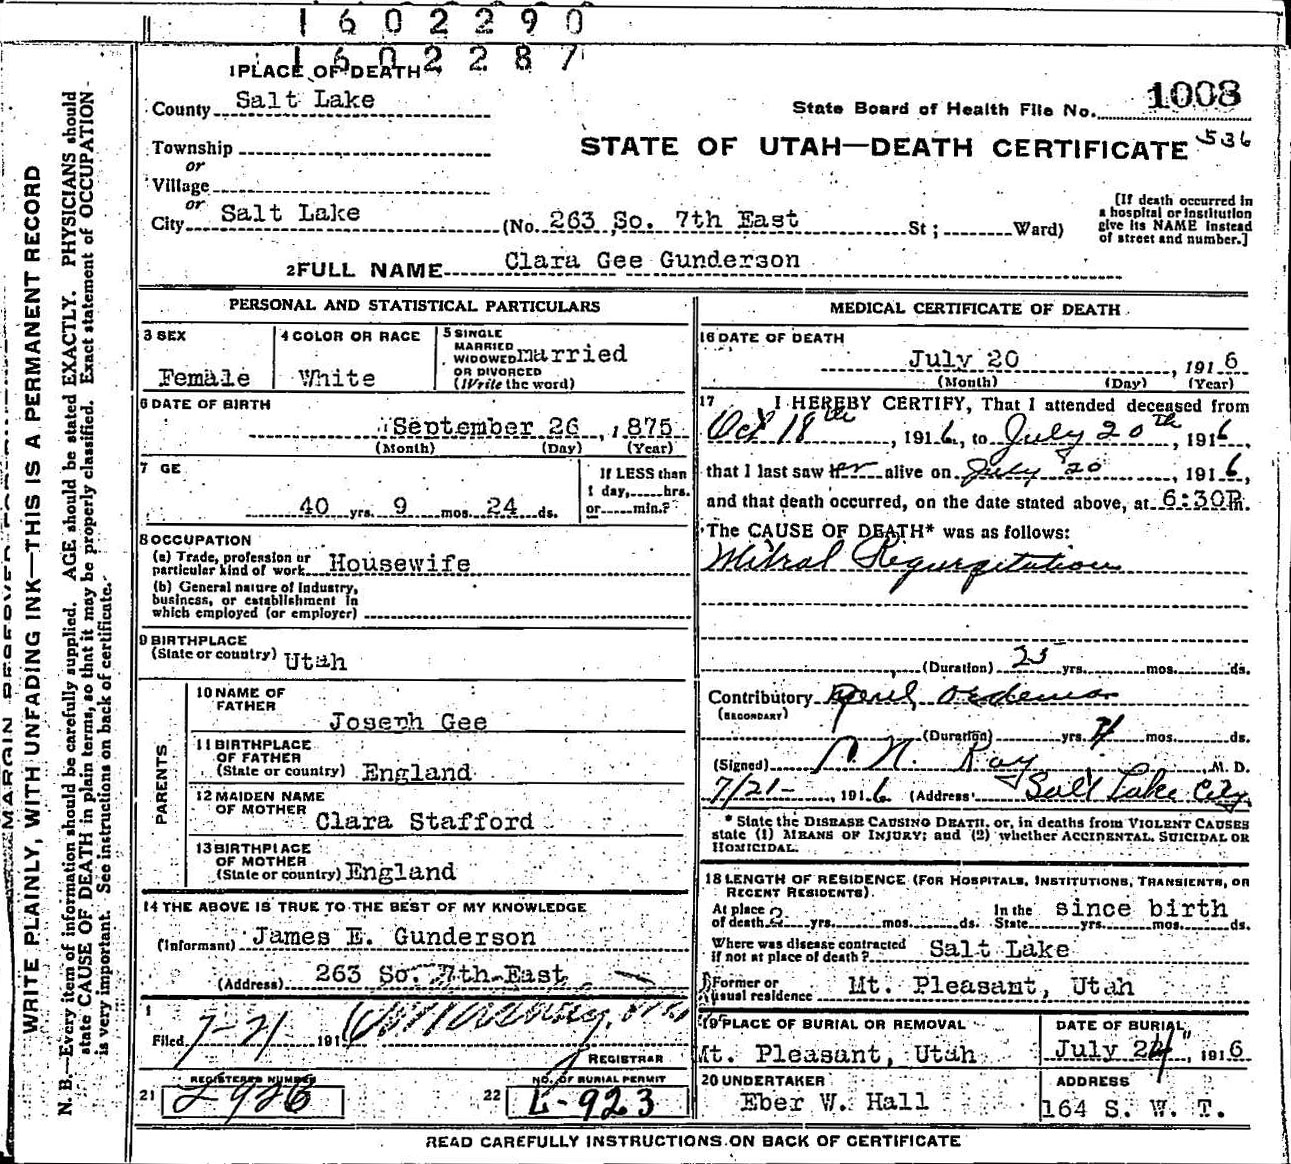 1602290
1602287
1 PLACE OF DEATH
County Salt Lake
State Board of Health File No. 1008
Township
or
Village
or
City Salt Lake
STATE OF UTAH—DEATH CERTIFICATE 536
(No. 263 So. 7th East St ; Ward)
[If death occurred in
a hospital or institution
give its NAME instead
of street and number.]
2 FULL NAME Clara Gee Gunderson
PERSONAL AND STATISTICAL PARTICULARS
3 SEX
Female
4 COLOR OR RACE
White
5 SINGLE
MARRIED
WIDOWED married
OR DIVORCED
(Write the word)
6 DATE OF BIRTH
September 26, 1875
(Month) (Day) (Year)
7 GE
40 yrs. 9 mos. 24 ds.
If LESS than
1 day, hrs.
or min.?
8 OCCUPATION
(a) Trade, profession or
particular kind of work Housewife
(b) General nature of industry,
business, or establishment in
which employed (or employer)
9 BIRTHPLACE
(State or country) Utah
PARENTS
10 NAME OF
FATHER
Joseph Gee
11 BIRTHPLACE
OF FATHER
(State or country) England
12 MAIDEN NAME
OF MOTHER Clara Stafford
13 BIRTHPLACE
OF MOTHER
(State or country) England
14 THE ABOVE IS TRUE TO THE BEST OF MY KNOWLEDGE
(Informant) James E. Gunderson
(Address) 263 So. 7th East
Filed 7-21 191
REGISTRAR
21 REGISTERED NUMBER
22 NO. OF BURIAL PERMIT
L-923
MEDICAL CERTIFICATE OF DEATH
16 DATE OF DEATH
July 20, 1916
(Month) (Day) (Year)
17 I HEREBY CERTIFY, That I attended deceased from
Oct 18th, 1916, to July 20th, 1916,
that I last saw her alive on July 20, 1916,
and that death occurred, on the date stated above, at 6:30P m.
The CAUSE OF DEATH* was as follows:
Mitral Regurgitation
(Duration) 25 yrs. mos. ds.
Contributory
(SECONDARY)
(Duration) yrs. mos. ds.
(Signed) Ray, M. D.
7/21-, 1916 (Address) Salt Lake City
* State the DISEASE CAUSING DEATH, or, in deaths from VIOLENT CAUSES
state (1) MEANS OF INJURY; and (2) whether ACCIDENTAL, SUICIDAL OR
HOMICIDAL.
18 LENGTH OF RESIDENCE (FOR HOSPITALS, INSTITUTIONS, TRANSIENTS, OR
RECENT RESIDENTS).
At place
of death ? yrs. mos. ds.
In the
State since birth yrs. mos. ds.
Where was disease contracted
if not at place of death? Salt Lake
Former or
usual residence Mt. Pleasant, Utah
19 PLACE OF BURIAL OR REMOVAL
Mt. Pleasant, Utah
DATE OF BURIAL
July 24, 1916
20 UNDERTAKER
Eber W. Hall
ADDRESS
164 S. W. T.
READ CAREFULLY INSTRUCTIONS ON BACK OF CERTIFICATE
MARGIN RESERVED FOR
WRITE PLAINLY, WITH UNFADING INK—THIS IS A PERMANENT RECORD
N. B.—Every item of information should be carefully supplied. AGE should be stated EXACTLY. PHYSICIANS should
state CAUSE OF DEATH in plain terms, so that it may be properly classified. Exact statement of OCCUPATION
is very important. See instructions on back of certificate.